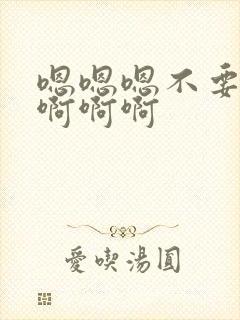 嗯嗯嗯不要
啊啊啊
愛喫湯圓